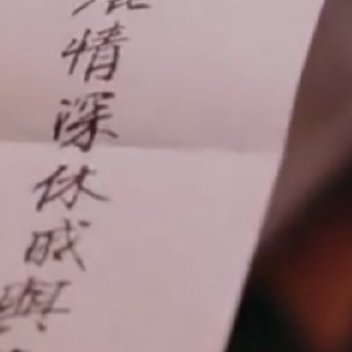 情深休戚與